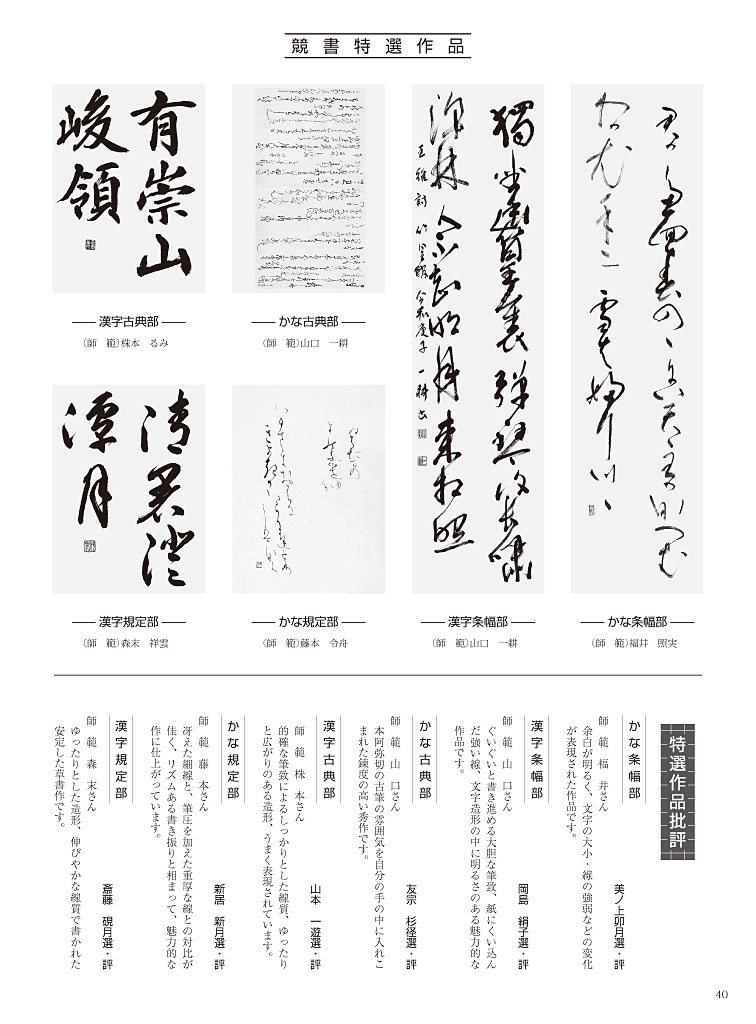 競書特選作品
有崇山
峻領
漢字古典部
（師　範）株本　るみ
かな古典部
（師　範）山口　一耕
獨坐幽篁裏弾琴復長嘯
深林人不知明月来相照
王維詩 竹里館 令和庚子 一耕書
漢字条幅部
（師　範）山口　一耕
かな条幅部
（師　範）福井　照実
清景澄
潭月
漢字規定部
（師　範）森末　祥雲
かな規定部
（師　範）藤本　令舟
特選作品批評
かな条幅部
美ノ上卯月選・評
師　範　福　井さん
余白が明るく、文字の大小・線の強弱などの変化
が表現された作品です。
漢字条幅部
岡島　絹子選・評
師　範　山　口さん
ぐいぐいと書き進める大胆な筆致、紙にくい込ん
だ強い線、文字造形の中に明るさのある魅力的な
作品です。
かな古典部
友宗　杉径選・評
師　範　山　口さん
本阿弥切の古筆の雰囲気を自分の手の中に入れこ
まれた錬度の高い秀作です。
漢字古典部
山本　一遊選・評
師　範　株　本さん
的確な筆致によるしっかりとした線質、ゆったり
と広がりのある造形、うまく表現されています。
かな規定部
新居　新月選・評
師　範　藤　本さん
冴えた細線と、筆圧を加えた重厚な線との対比が
佳く、リズムある書き振りと相まって、魅力的な
作に仕上がっています。
漢字規定部
斎藤　硯月選・評
師　範　森　末さん
ゆったりとした造形、伸びやかな線質で書かれた
安定した草書作です。
40